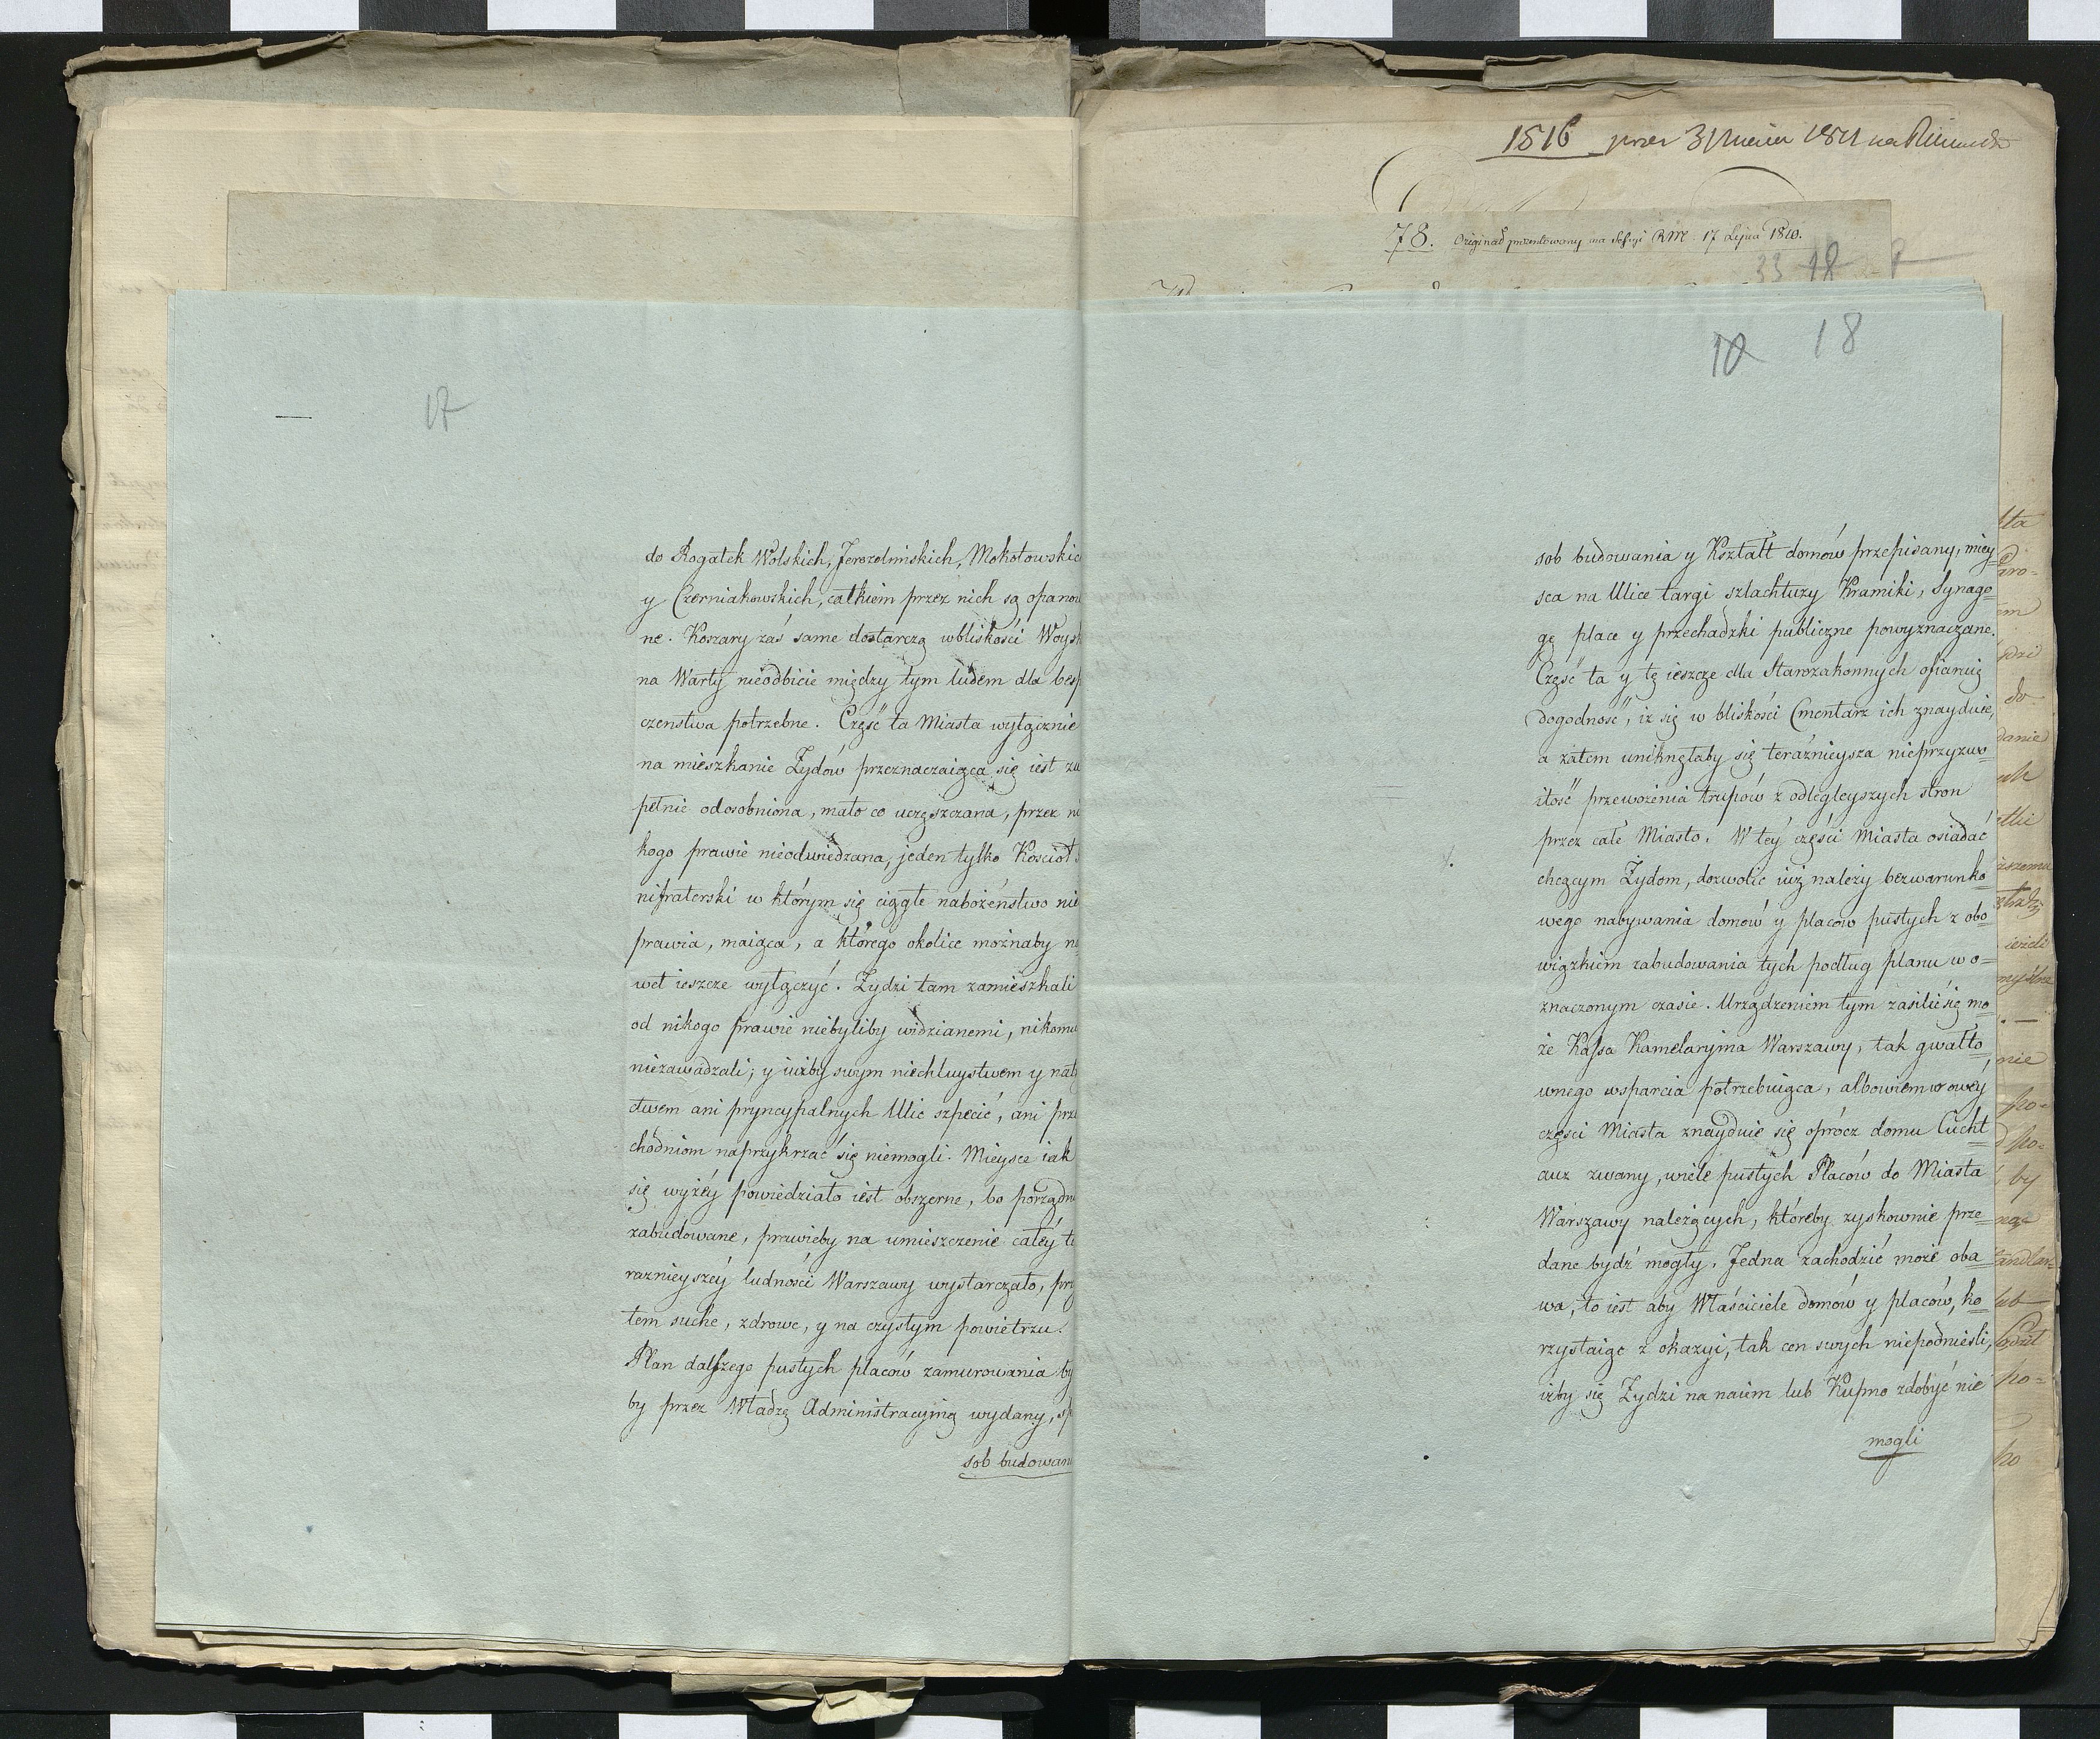 17
do Rogatek Wolskich, Jerozolmiskich, Mokotowskic
y Czerniakowskich, całkiem przez nich są opanow
ne. Koszary zaś same dostarczą wbliskości Woysk
na Warty nieodbicie między tym ludem dla besp
czenstwa potrzebne. Część ta Miasta wyłącznie
na mieszkanie Żydów przeznaczaiąca się iest zu
pełnie odosobniona, mało co uczęszczana, przez ni
kogo prawie nieodwiedzana, jeden tylko Kościół
nifraterski w którym się ciągłe nabożeństwo nie
prawia, maiąca, a którego okolice możnaby na
wet ieszcze wyłączyć. Żydzi tam zamieszkali
od nikogo prawie niebyliby widzianemi, nikomu
niezawadzali; y iużby swym niechluystwem y nat
ctwem ani pryncypalnych Ulic szpecić, ani prze
chodniom naprzykrzać się niemogli. Mieysce iak
się wyżéy powiedziało iest obszerne, bo porządn
zabudowane, prawieby na umieszczenie całéy te
raznieyszéy ludności Warszawy wystarczało, prz
tem suche, zdrowe, y na czystym powietrzu.
Plan dalszego pustych placów zamurowania by
by przez Władzę Administracyiną wydany, sp
sob budowan
1516
78. Originał prezentowany na Sessyi RM 17 Lipca 1810.
33 18
10 18
sob budowania y Kształt domów przepisany, miey
sca na Ulice targi szlachtuzy Kramiki, Synago=
gę place y przechadzki publiczne powyznaczane.
Część ta y tę ieszcze dla Starozakonnych ofiaruię
dogodność, iz się w bliskości Cmentarz ich znayduie,
a zatem uniknęłaby się teraźnieysza nieprzyzwo=
itość przewożenia trupów z odlegleyszych stron
przez całe Miasto. W téy części Miasta osiadać
chcącym Żydom, dozwolić iuż należy bezwarunko=
wego nabywania domów y placów pustych z obo=
wiązkiem zabudowania tych podług planu w o=
znaczonym czasie. Urządzeniem tym zasilić się mo=
że Kassa Kamelaryina Warszawy, tak gwałto=
wnego wsparcia potrzebuiąca, albowiem w owéy
częsci Miasta znayduie się oprócz domu Cucht=
auz zwany, wiele pustych Placów do Miasta
Warszawy należących, któreby zyskownie prze=
dane bydź mogły. Jedna zachodzić może oba=
wa, to iest aby Właściciele domów y placów, ko=
rzystaiąc z okazyi, tak cen swych niepodnieśli,
iżby się Żydzi na naiem lub Kupno zdobyć nie
mogli